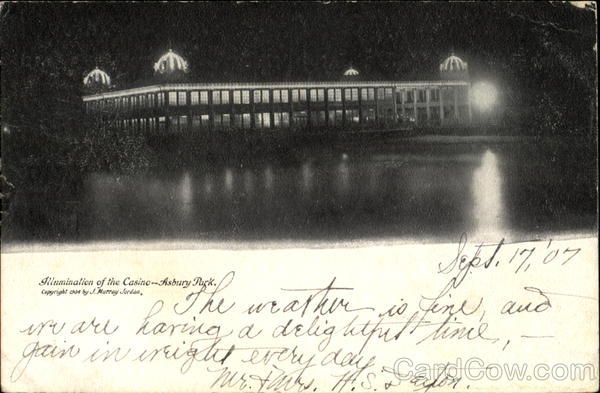 Illumination of the Casino--Asbury Park.
Copyright 1904 by J. Murray Jordan.
Sept. 17, '07
The weather is fine, and
we are having a delightful time, —
gain in weight every day
Mr. & Mrs. H. S.
CardCow.com